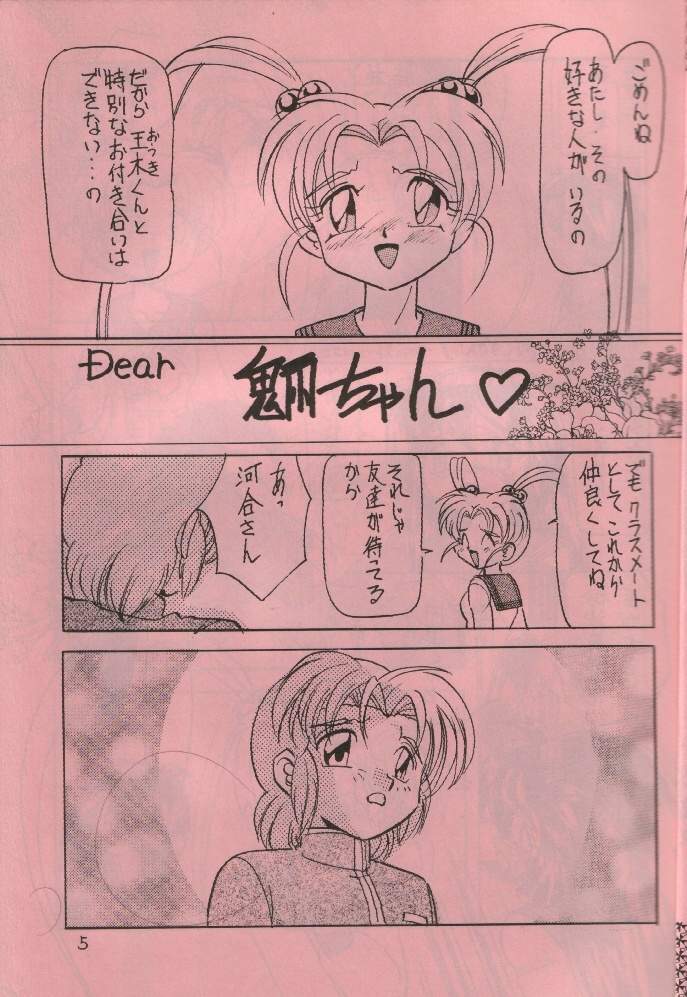 ごめんね
あたし・その
好きな人が いるの
だから 王木くんと
おうき
特別なお付き合いは
できない・・・の
Dear 魎ちゃん♡
でも クラスメート
として これから
仲良くしてね
それじゃ
友達が待ってる
から
あっ
河合さん
5